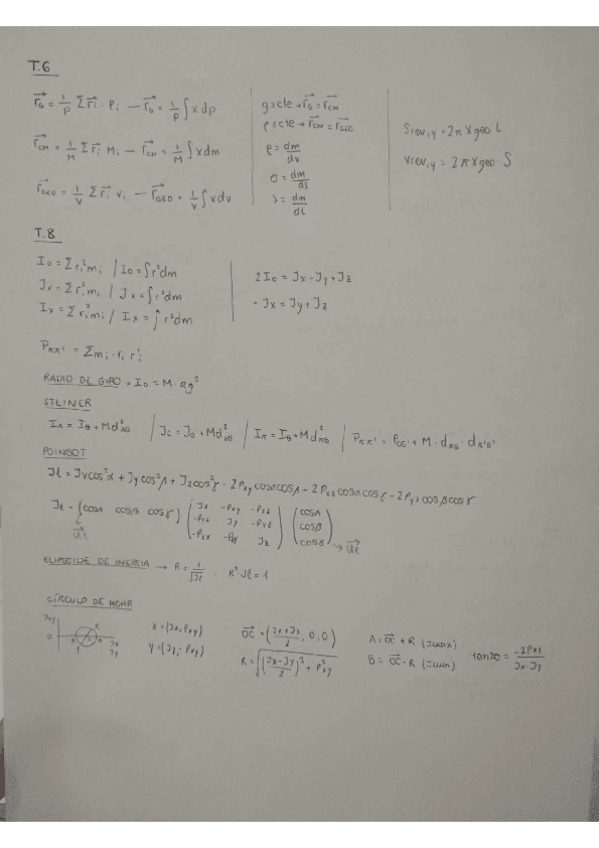 T.6
r⃗G = 1/P Σ r⃗i · Pi — r⃗G = 1/P ∫ x dp
r⃗CM = 1/M Σ r⃗i Mi — r⃗CM = 1/M ∫ x dm
r⃗GEO = 1/V Σ r⃗i Vi — r⃗GEO = 1/V ∫ x dv
g=cte → r⃗G = r⃗CM
ρ=cte → r⃗CM = r⃗GEO
ρ = dm/dv
σ = dm/ds
λ = dm/dl
Srev,y = 2π xgeo L
Vrev,y = 2π xgeo · S
T.8
Io = Σ ri² mi / Io = ∫ r² dm
Jx = Σ ri² mi / Jx = ∫ r² dm
Ix = Σ ri² mi / Ix = ∫ r² dm
2Io = Jx + Jy + Jz
= Jx = Jy + Jz
Pππ' = Σ mi · ri r'i
RADIO DE GIRO → Io = M · Rg²
STEINER
IA = IG + Md²AG / JE = JG + Md²EG / Iπ = IG + Md²πG / Pππ' = PGG' + M · dπG · dπ'G'
POINSOT
Jl = Jx cos²α + Jy cos²β + Jz cos²γ - 2Pxy cosα cosβ - 2Pxz cosα cosγ - 2Pyz cosβ cosγ
Jl = (cosα cosβ cosγ) ( Jx -Pxy -Pxz ) ( cosα )
-Pyx Jy -Pyz cosβ
-Pzx -Pzy Jz cosγ → u⃗l
u⃗l
ELIPSOIDE DE INERCIA → R = 1/√Jl · R² · Jl = 1
CÍRCULO DE MOHR
Pxy
0
Jx
Jy
X = (Jx, Pxy)
Y = (Jy, -Pxy)
O⃗C = ( Jx+Jy/2 , 0, 0)
R = √( (Jx-Jy/2)² + P²xy )
A = O⃗C + R (Jmax)
B = O⃗C - R (Jmin)
tan2θ = -2Pxy/Jx-Jy